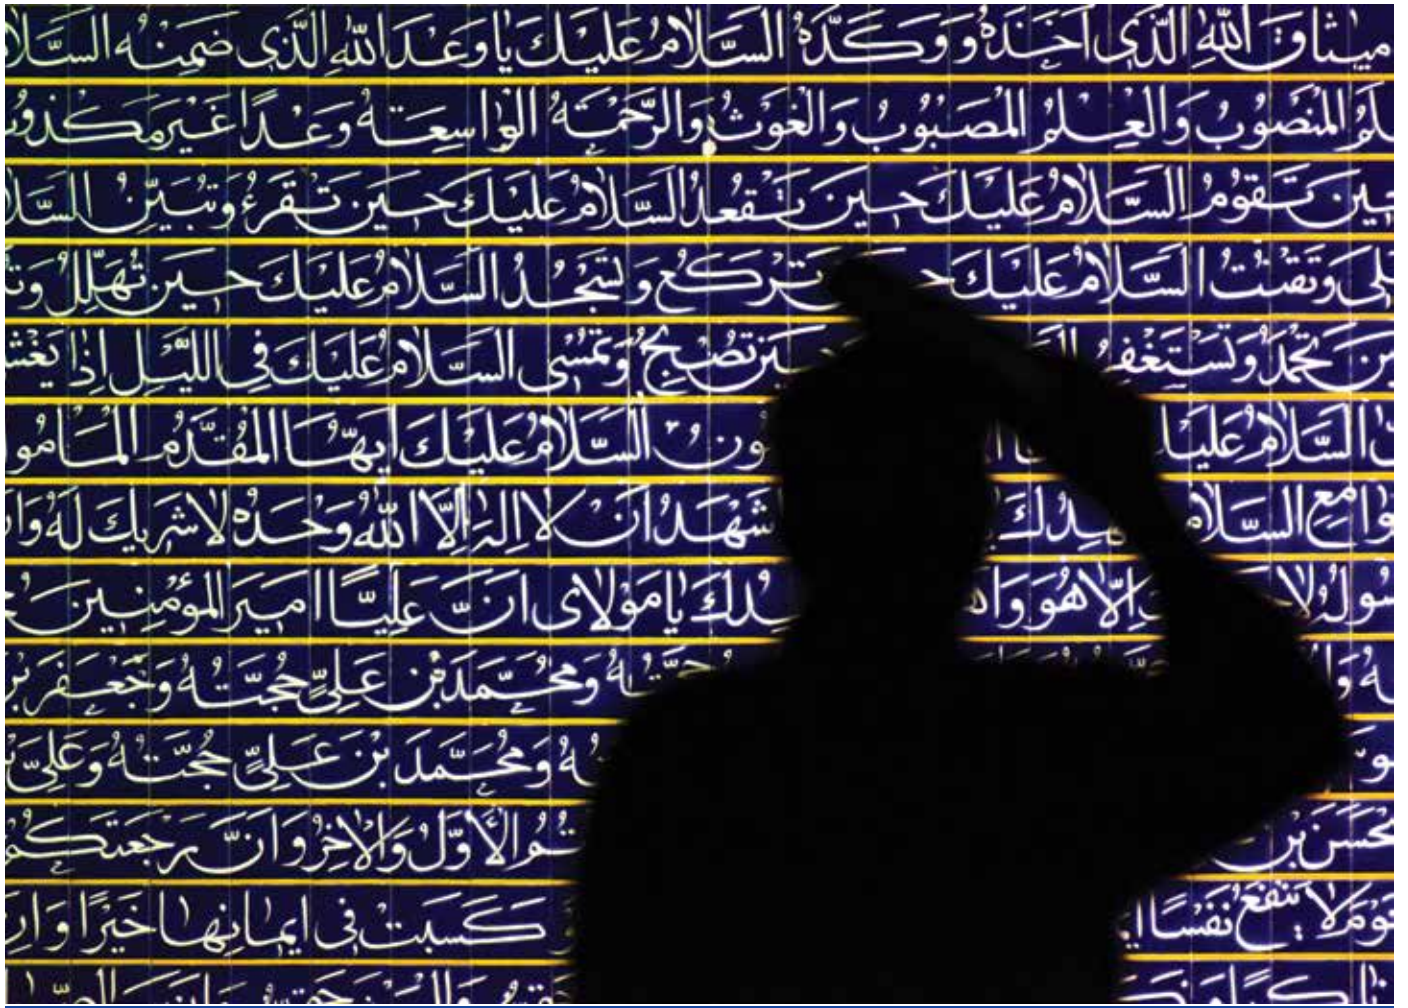 ميثاقَ اللّٰهِ الَّذی اَخَذَهُ وَ وَكَّدَهُ السَّلامُ عَلَيْكَ يا وَعْدَ اللّٰهِ الَّذی ضَمِنَهُ السَّلا
الْمَنْصُوبُ وَالْعِلْمُ الْمَصْبُوبُ وَالْغَوْثُ وَالرَّحْمَةُ الْواسِعَةُ وَعْدًا غَيْرَ مَكْذُو
حينَ تَقُومُ السَّلامُ عَلَيْكَ حينَ تَقْعُدُ السَّلامُ عَلَيْكَ حينَ تَقْرَءُ وَ تُبَيِّنُ السَّلا
لّی وَ تَقْنُتُ السَّلامُ عَلَيْكَ تَرْكَعُ وَ تَسْجُدُ السَّلامُ عَلَيْكَ حينَ تُهَلِّلُ وَتُ
تَحْمَدُ وَ تَسْتَغْفِرُ تُصْبِحُ وَ تُمْسی السَّلامُ عَلَيْكَ فِی اللَّيْلِ اِذا يَغْشـ
السَّلامُ عَلَيـ ونُ السَّلامُ عَلَيْكَ اَيُّهَا الْمُقَدَّمُ الْمَاْمُو
وامِعِ السَّلام هِدُكَ شْهَدُ اَنْ لا اِلٰهَ اِلَّا اللّٰهُ وَحْدَهُ لا شَريكَ لَهُ وَاَ
سُولُهُ لا اِلّا هُوَ وَاَهْـ دُكَ يا مَوْلایَ اَنَّ عَلِيًّا اَميرَ الْمُؤْمِنينَ حُـ
هُ وَ حُجَّتُهُ وَ مُحَمَّدَ بْنَ عَلِیٍّ حُجَّتُهُ وَ جَعْفَرَ بْنَ
مو هُ وَ مُحَمَّدَ بْنَ عَلِیٍّ حُجَّتُهُ وَ عَلِیَّ بْـ
لْحَسَنَ بْنَ تُمُ الْاَوَّلُ وَالْاٰخِرُ وَ اَنَّ رَجْعَتَكُمْ
يَوْمَ لا يَنْفَعُ نَفْسًا ايـ كَسَبَتْ فی ايمانِها خَيْرًا وَ اَنَّ